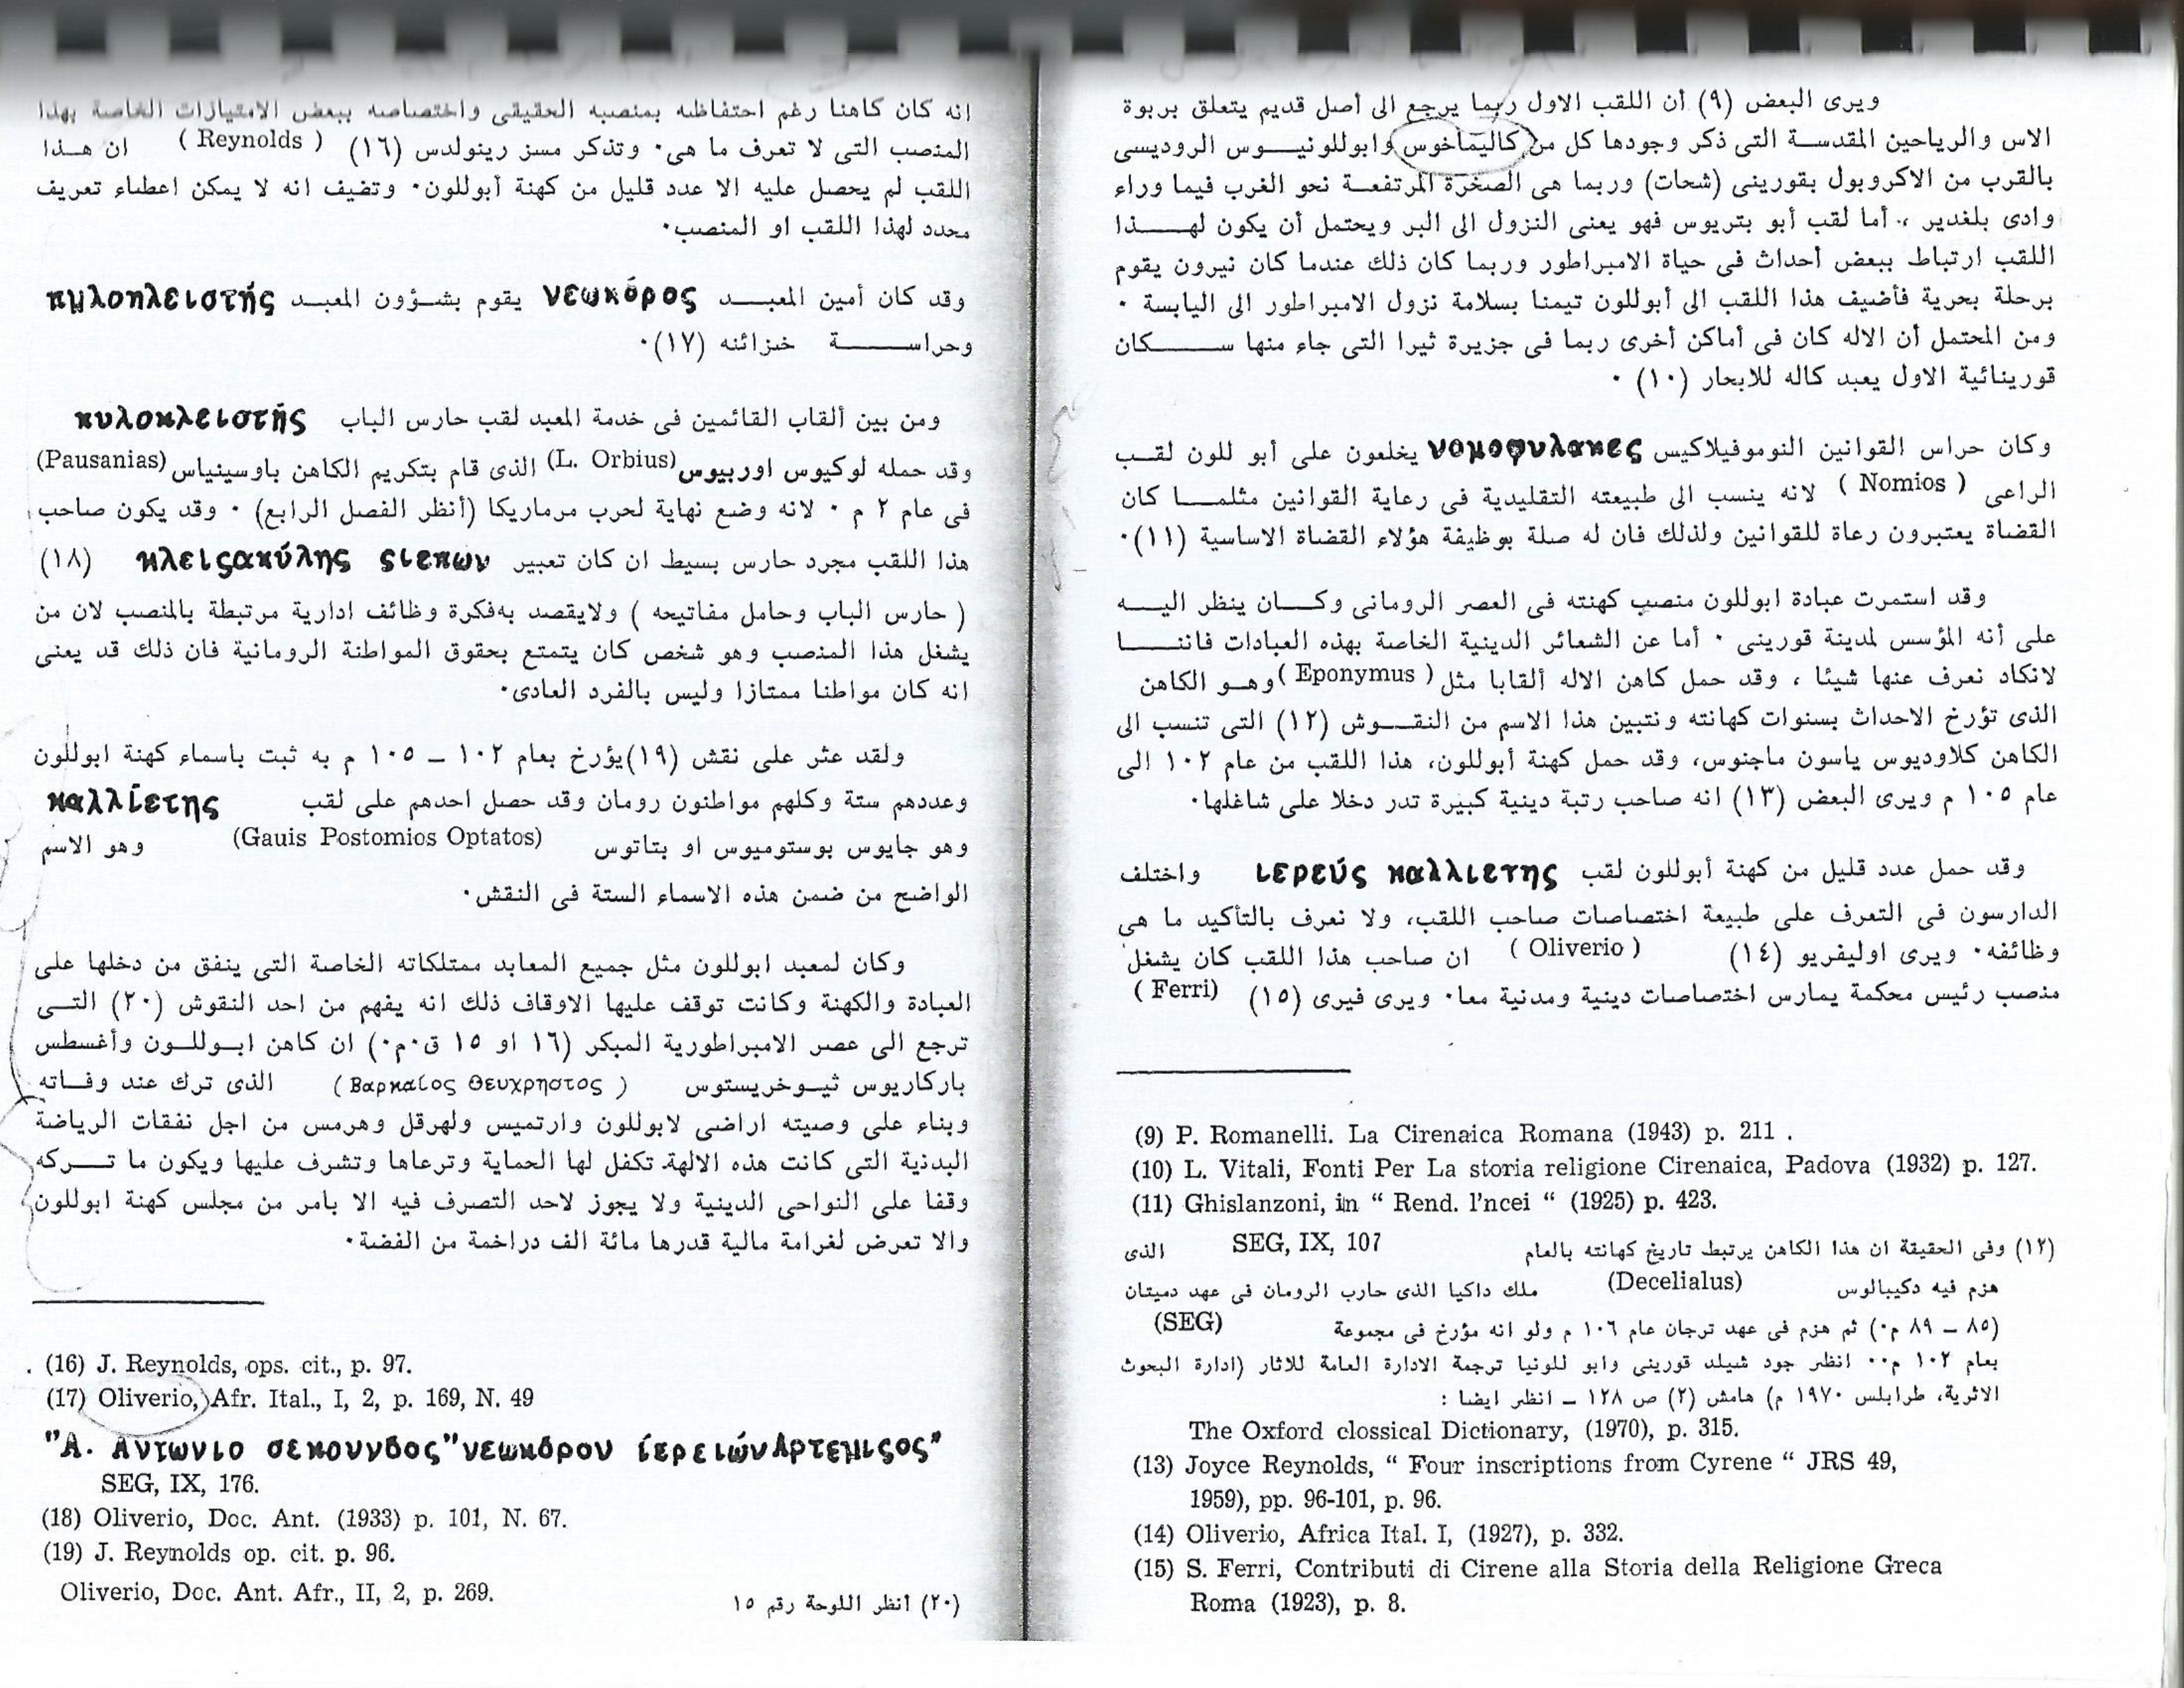 ويرى البعض (٩) أن اللقب الاول ربما يرجع الى أصل قديم يتعلق بربوة
الاس والرياحين المقدسة التى ذكر وجودها كل من كاليماخوس وابوللونيوس الروديسى
بالقرب من الاكروبول بقورينى (شحات) وربما هى الصخرة المرتفعة نحو الغرب فيما وراء
وادى بلغدير ، أما لقب أبو بتريوس فهو يعنى النزول الى البر ويحتمل أن يكون لهذا
اللقب ارتباط ببعض أحداث فى حياة الامبراطور وربما كان ذلك عندما كان نيرون يقوم
برحلة بحرية فأضيف هذا اللقب الى أبوللون تيمنا بسلامة نزول الامبراطور الى اليابسة ٠
ومن المحتمل أن الاله كان فى أماكن أخرى ربما فى جزيرة ثيرا التى جاء منها سكان
قورينائية الاول يعبد كاله للابحار (١٠) ٠
وكان حراس القوانين النوموفيلاكيس νομοφυλακες يخلعون على أبو للون لقب
الراعى ( Nomios ) لانه ينسب الى طبيعته التقليدية فى رعاية القوانين مثلما كان
القضاة يعتبرون رعاة للقوانين ولذلك فان له صلة بوظيفة هؤلاء القضاة الاساسية (١١)٠
وقد استمرت عبادة ابوللون منصب كهنته فى العصر الرومانى وكان ينظر اليه
على أنه المؤسس لمدينة قورينى ٠ أما عن الشعائر الدينية الخاصة بهذه العبادات فاننا
لانكاد نعرف عنها شيئا ، وقد حمل كاهن الاله ألقابا مثل ( Eponymus ) وهو الكاهن
الذى تؤرخ الاحداث بسنوات كهانته ونتبين هذا الاسم من النقوش (١٢) التى تنسب الى
الكاهن كلاوديوس ياسون ماجنوس، وقد حمل كهنة أبوللون، هذا اللقب من عام ١٠٢ الى
عام ١٠٥ م ويرى البعض (١٣) انه صاحب رتبة دينية كبيرة تدر دخلا على شاغلها٠
وقد حمل عدد قليل من كهنة أبوللون لقب ιερεύς καλλιετης واختلف
الدارسون فى التعرف على طبيعة اختصاصات صاحب اللقب، ولا نعرف بالتأكيد ما هى
وظائفه٠ ويرى اوليفريو (١٤) ( Oliverio ) ان صاحب هذا اللقب كان يشغل
منصب رئيس محكمة يمارس اختصاصات دينية ومدنية معا٠ ويرى فيرى (١٥) ( Ferri)
(9) P. Romanelli. La Cirenaica Romana (1943) p. 211 .
(10) L. Vitali, Fonti Per La storia religione Cirenaica, Padova (1932) p. 127.
(11) Ghislanzoni, in “ Rend. l'ncei “ (1925) p. 423.
(١٢) وفى الحقيقة ان هذا الكاهن يرتبط تاريخ كهانته بالعام SEG, IX, 107 الذى
هزم فيه دكيبالوس (Decelialus) ملك داكيا الذى حارب الرومان فى عهد دميتان
(٨٥ – ٨٩ م٠) ثم هزم فى عهد ترجان عام ١٠٦ م ولو انه مؤرخ فى مجموعة (SEG)
بعام ١٠٢ م٠٠ انظر جود شيلد قورينى وابو للونيا ترجمة الادارة العامة للاثار (ادارة البحوث
الاثرية، طرابلس ١٩٧٠ م) هامش (٢) ص ١٢٨ – انظر ايضا :
The Oxford clossical Dictionary, (1970), p. 315.
(13) Joyce Reynolds, “ Four inscriptions from Cyrene “ JRS 49,
1959), pp. 96-101, p. 96.
(14) Oliverio, Africa Ital. I, (1927), p. 332.
(15) S. Ferri, Contributi di Cirene alla Storia della Religione Greca
Roma (1923), p. 8.
انه كان كاهنا رغم احتفاظه بمنصبه الحقيقى واختصاصه ببعض الامتيازات الخاصة بهذا
المنصب التى لا تعرف ما هى٠ وتذكر مسز رينولدس (١٦) ( Reynolds ) ان هذا
اللقب لم يحصل عليه الا عدد قليل من كهنة أبوللون٠ وتضيف انه لا يمكن اعطاء تعريف
محدد لهذا اللقب او المنصب٠
وقد كان أمين المعبد νεωκόρος يقوم بشؤون المعبد πμλοπλειστής
وحراسة خزائنه (١٧)٠
ومن بين ألقاب القائمين فى خدمة المعبد لقب حارس الباب πυλοκλειστής
وقد حمله لوكيوس اوربيوس (L. Orbius) الذى قام بتكريم الكاهن باوسينياس (Pausanias)
فى عام ٢ م ٠ لانه وضع نهاية لحرب مرماريكا (أنظر الفصل الرابع) ٠ وقد يكون صاحب
هذا اللقب مجرد حارس بسيط ان كان تعبير κλειςακύλης ςιεπων (١٨)
( حارس الباب وحامل مفاتيحه ) ولايقصد به فكرة وظائف ادارية مرتبطة بالمنصب لان من
يشغل هذا المنصب وهو شخص كان يتمتع بحقوق المواطنة الرومانية فان ذلك قد يعنى
انه كان مواطنا ممتازا وليس بالفرد العادى٠
ولقد عثر على نقش (١٩)يؤرخ بعام ١٠٢ – ١٠٥ م به ثبت باسماء كهنة ابوللون
وعددهم ستة وكلهم مواطنون رومان وقد حصل احدهم على لقب καλλίετης
وهو جايوس بوستوميوس او بتاتوس (Gauis Postomios Optatos) وهو الاسم
الواضح من ضمن هذه الاسماء الستة فى النقش٠
وكان لمعبد ابوللون مثل جميع المعابد ممتلكاته الخاصة التى ينفق من دخلها على
العبادة والكهنة وكانت توقف عليها الاوقاف ذلك انه يفهم من احد النقوش (٢٠) التى
ترجع الى عصر الامبراطورية المبكر (١٦ او ١٥ ق٠م٠) ان كاهن ابوللون وأغسطس
باركاريوس ثيوخريستوس ( Βαρκαίος Θευχρηστος ) الذى ترك عند وفاته
وبناء على وصيته اراضى لابوللون وارتميس ولهرقل وهرمس من اجل نفقات الرياضة
البدنية التى كانت هذه الالهة تكفل لها الحماية وترعاها وتشرف عليها ويكون ما تركه
وقفا على النواحى الدينية ولا يجوز لاحد التصرف فيه الا بامر من مجلس كهنة ابوللون
والا تعرض لغرامة مالية قدرها مائة الف دراخمة من الفضة٠
(16) J. Reynolds, ops. cit., p. 97.
(17) Oliverio, Afr. Ital., I, 2, p. 169, N. 49
"Α. Αντωνιο σεκουνδος"νεωκόρον ίερειών Αρτεμιςος"
SEG, IX, 176.
(18) Oliverio, Doc. Ant. (1933) p. 101, N. 67.
(19) J. Reynolds op. cit. p. 96.
Oliverio, Doc. Ant. Afr., II, 2, p. 269.
(٢٠) أنظر اللوحة رقم ١٥